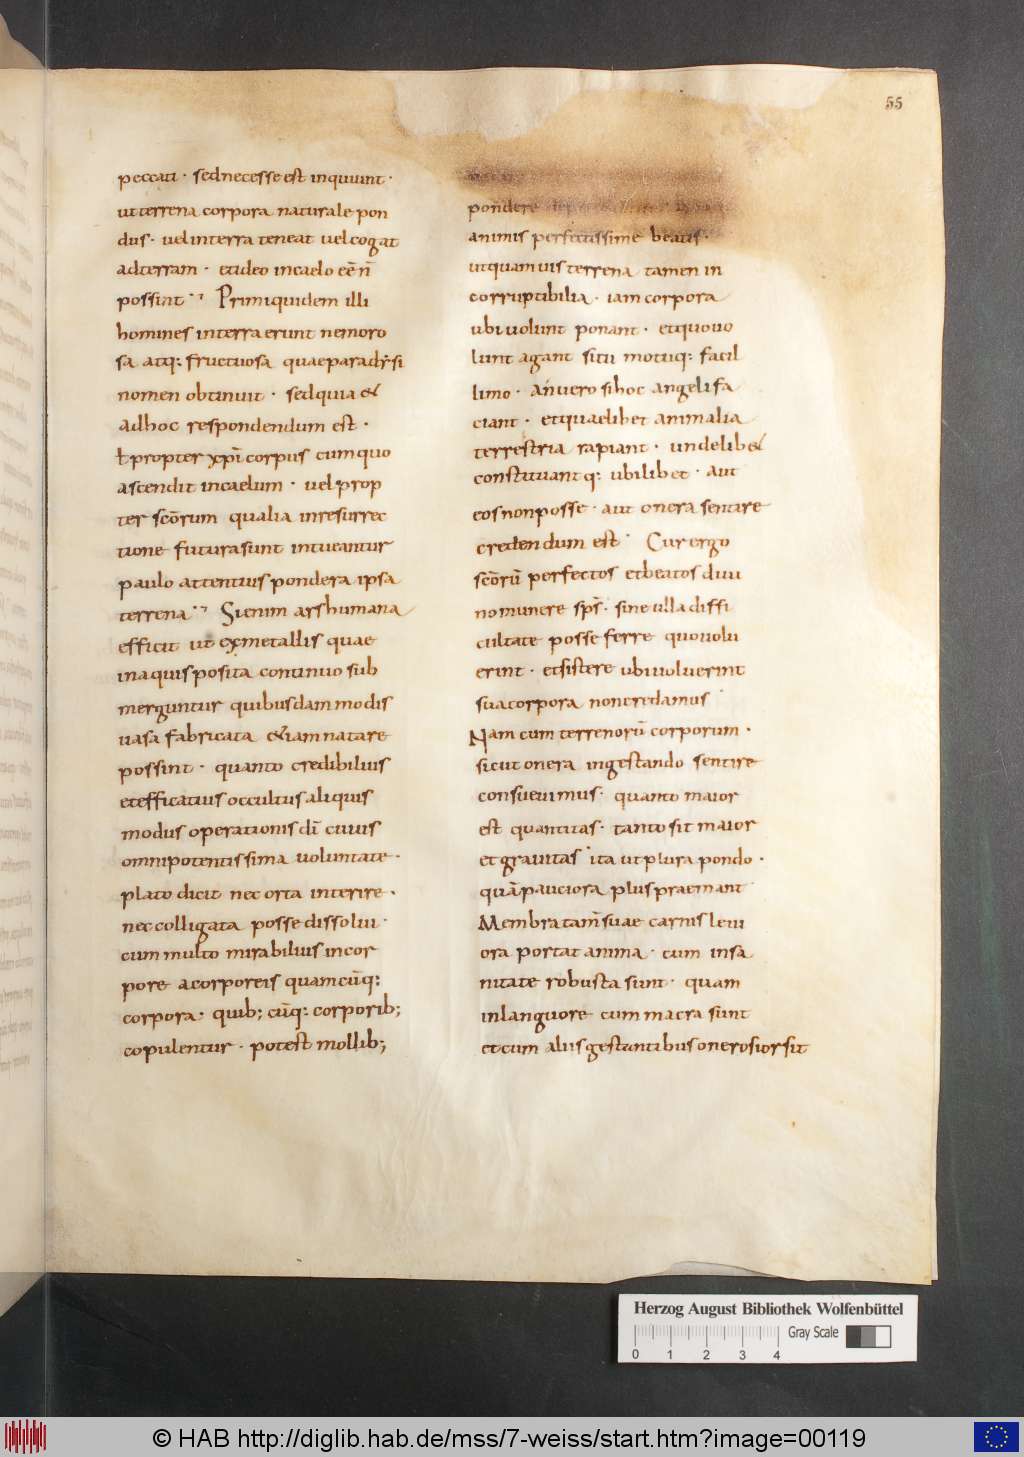 55
peccati · sed necesse est inquiunt ·
ut terrena corpora naturale pon
dus · uel in terra teneat uel cogat
ad terram · et ideo in caelo eē ñ
possint Primi quidem illi
homines in terra erunt nemoro
sa atq: fructuosa quae paradysi
nomen obtinuit · sed quia &
ad hoc respondendum est ·
ł propter xpī corpus cum quo
ascendit in caelum · uel prop
ter scōrum qualia in resurrec
tione futura sunt intueantur
paulo attentius pondera ipsa
terrena Si enim ars humana
efficit ut ex metallis quae
in aquis posita continuo sub
merguntur quibusdam modis
uasa fabricata &iam natare
possint · quanto credibilius
et efficatius occultus aliquis
modus operationis dī cuius
omnipotentissima uoluntate ·
plato dicit nec orta interire ·
nec colligata posse dissolui ·
cum multo mirabilius incor
porea corporeis quam cūq:
corpora · quib; cūq: corporib;
copulentur · potest mollib;
pondere
animis perfectissime beatis ·
ut quamuis terrena tamen in
corruptibilia · iam corpora
ubi uolunt ponant · et quo uo
lunt agant situ motuq: facil
limo · An uero si hoc angeli fa
ciant · et quaelibet animalia
terrestria rapiant · undelib&
constituant q: ubilibet · aut
eos non posse · aut onera sentire
credendum est · Cur ergo
scōrū perfectos et beatos diui
no munere sp̄s · sine ulla diffi
cultate posse ferre quo uolu
erint · et sistere ubi uoluerint
sua corpora non credamus
Nam cum terrenorū corporum ·
sicut onera in gestando sentire
consueuimus · quanto maior
est quantitas · tanto sit maior
et grauitas ita ut plura pondo ·
quā pauciora plus praemant
Membra tam̄ suae carnis leui
ora portat anima · cum in sa
nitate robusta sunt · quam
in languore cum macra sunt
et cum aliis gestantibus onerosior sit
Herzog August Bibliothek Wolfenbüttel
Gray Scale
0 1 2 3 4
© HAB http://diglib.hab.de/mss/7-weiss/start.htm?image=00119